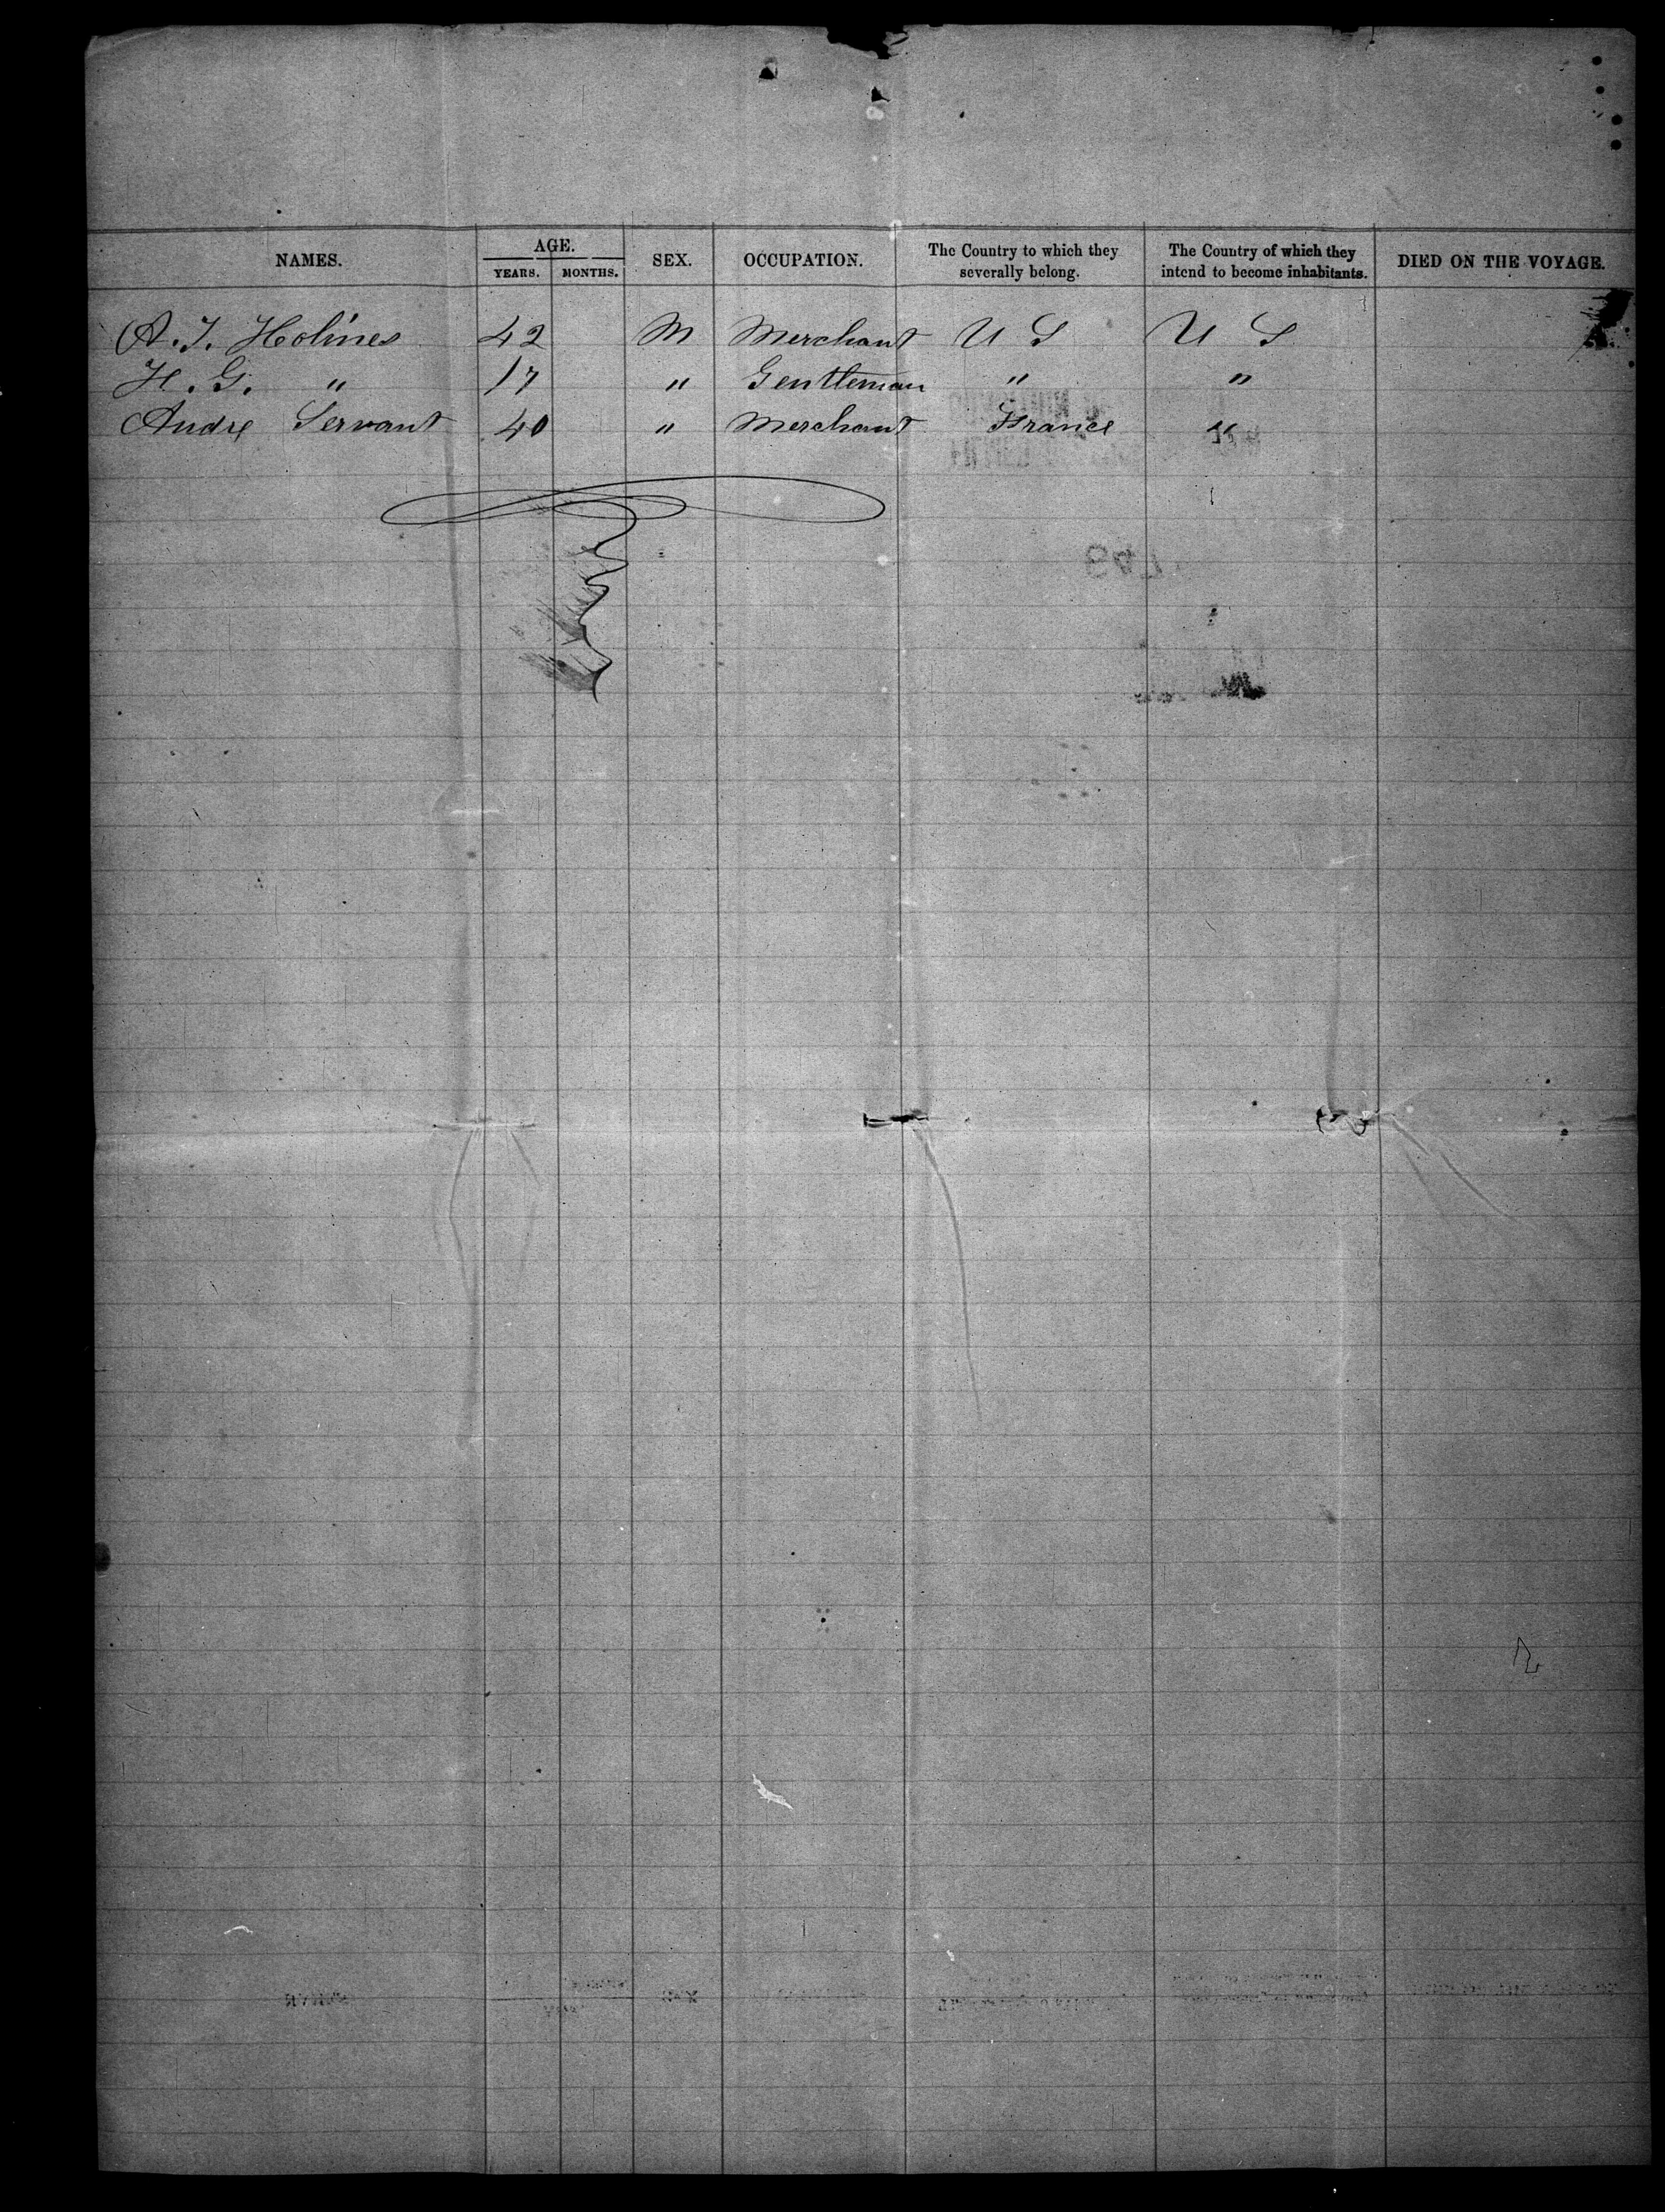 NAMES. AGE. SEX. OCCUPATION. The Country to which they severally belong. The Country of which they intend to become inhabitants. DIED ON THE VOYAGE.
YEARS. MONTHS.
A. J. Holmes 42 M Merchant U S U S
H. G. " 17 " Gentleman " "
Andre Servant 40 " Merchant France "
647